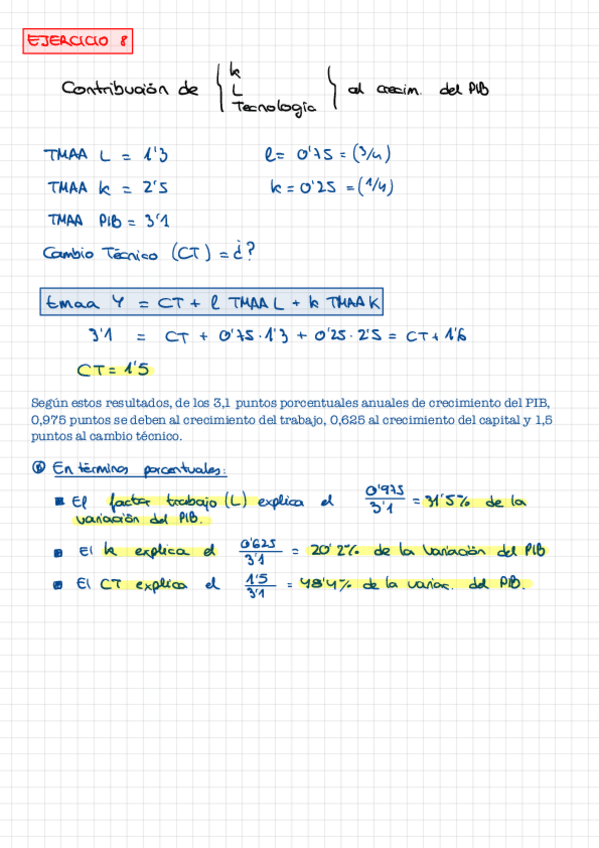 EJERCICIO 8
Contribución de { k L Tecnología } al crecim. del PIB
TMAA L = 1'3 l = 0'75 = (3/4)
TMAA k = 2'5 k = 0'25 = (1/4)
TMAA PIB = 3'1
Cambio Técnico (CT) = ¿?
tmaa Y = CT + l TMAA L + k TMAA K
3'1 = CT + 0'75 · 1'3 + 0'25 · 2'5 = CT + 1'6
CT = 1'5
Según estos resultados, de los 3,1 puntos porcentuales anuales de crecimiento del PIB,
0,975 puntos se deben al crecimiento del trabajo, 0,625 al crecimiento del capital y 1,5
puntos al cambio técnico.
En términos porcentuales:
El factor trabajo (L) explica el 0'975/3'1 = 31'5% de la
variación del PIB.
El k explica el 0'625/3'1 = 20'2% de la variación del PIB
El CT explica el 1'5/3'1 = 48'4% de la variac. del PIB.